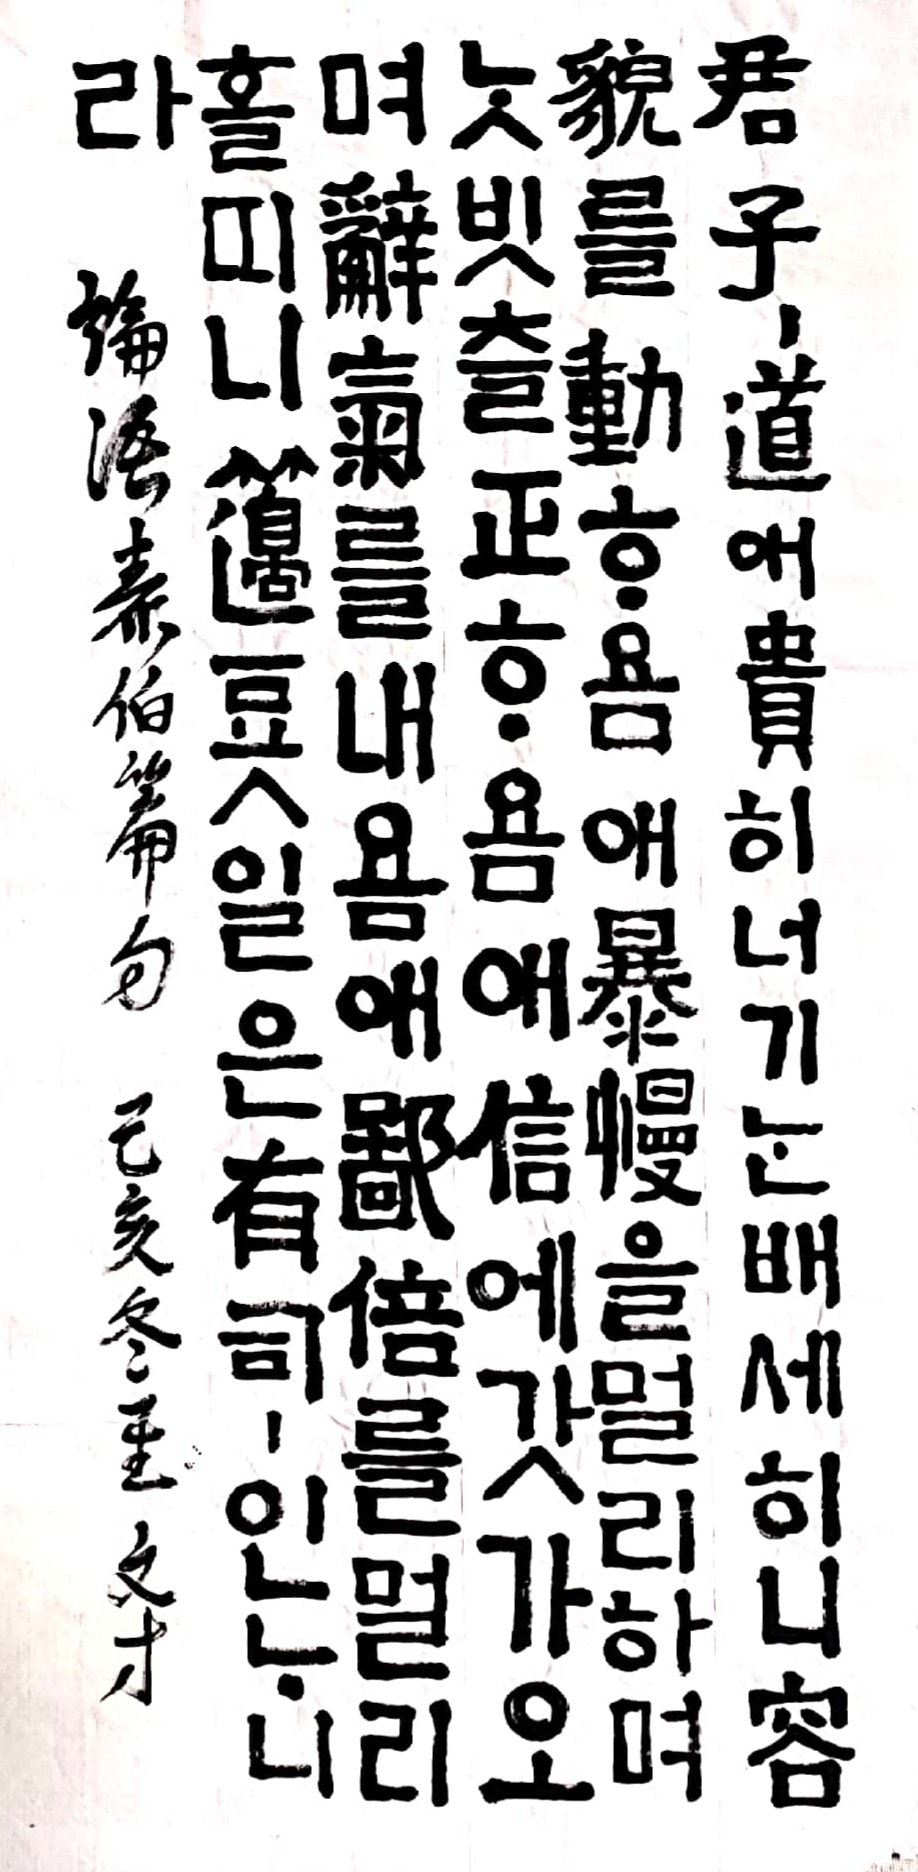 君子ㅣ道애貴히너기눈배세히니容
貌를動ᄒᆞ욤애暴慢을멀리하며
ᄂᆞᆺ빗츨正ᄒᆞ욤애信에갓가오
며辭氣를내욤애鄙倍를멀리
홀띠니籩豆ㅅ일은有司ㅣ인ᄂᆞ니
라 論語泰伯篇句 己亥冬至 文才